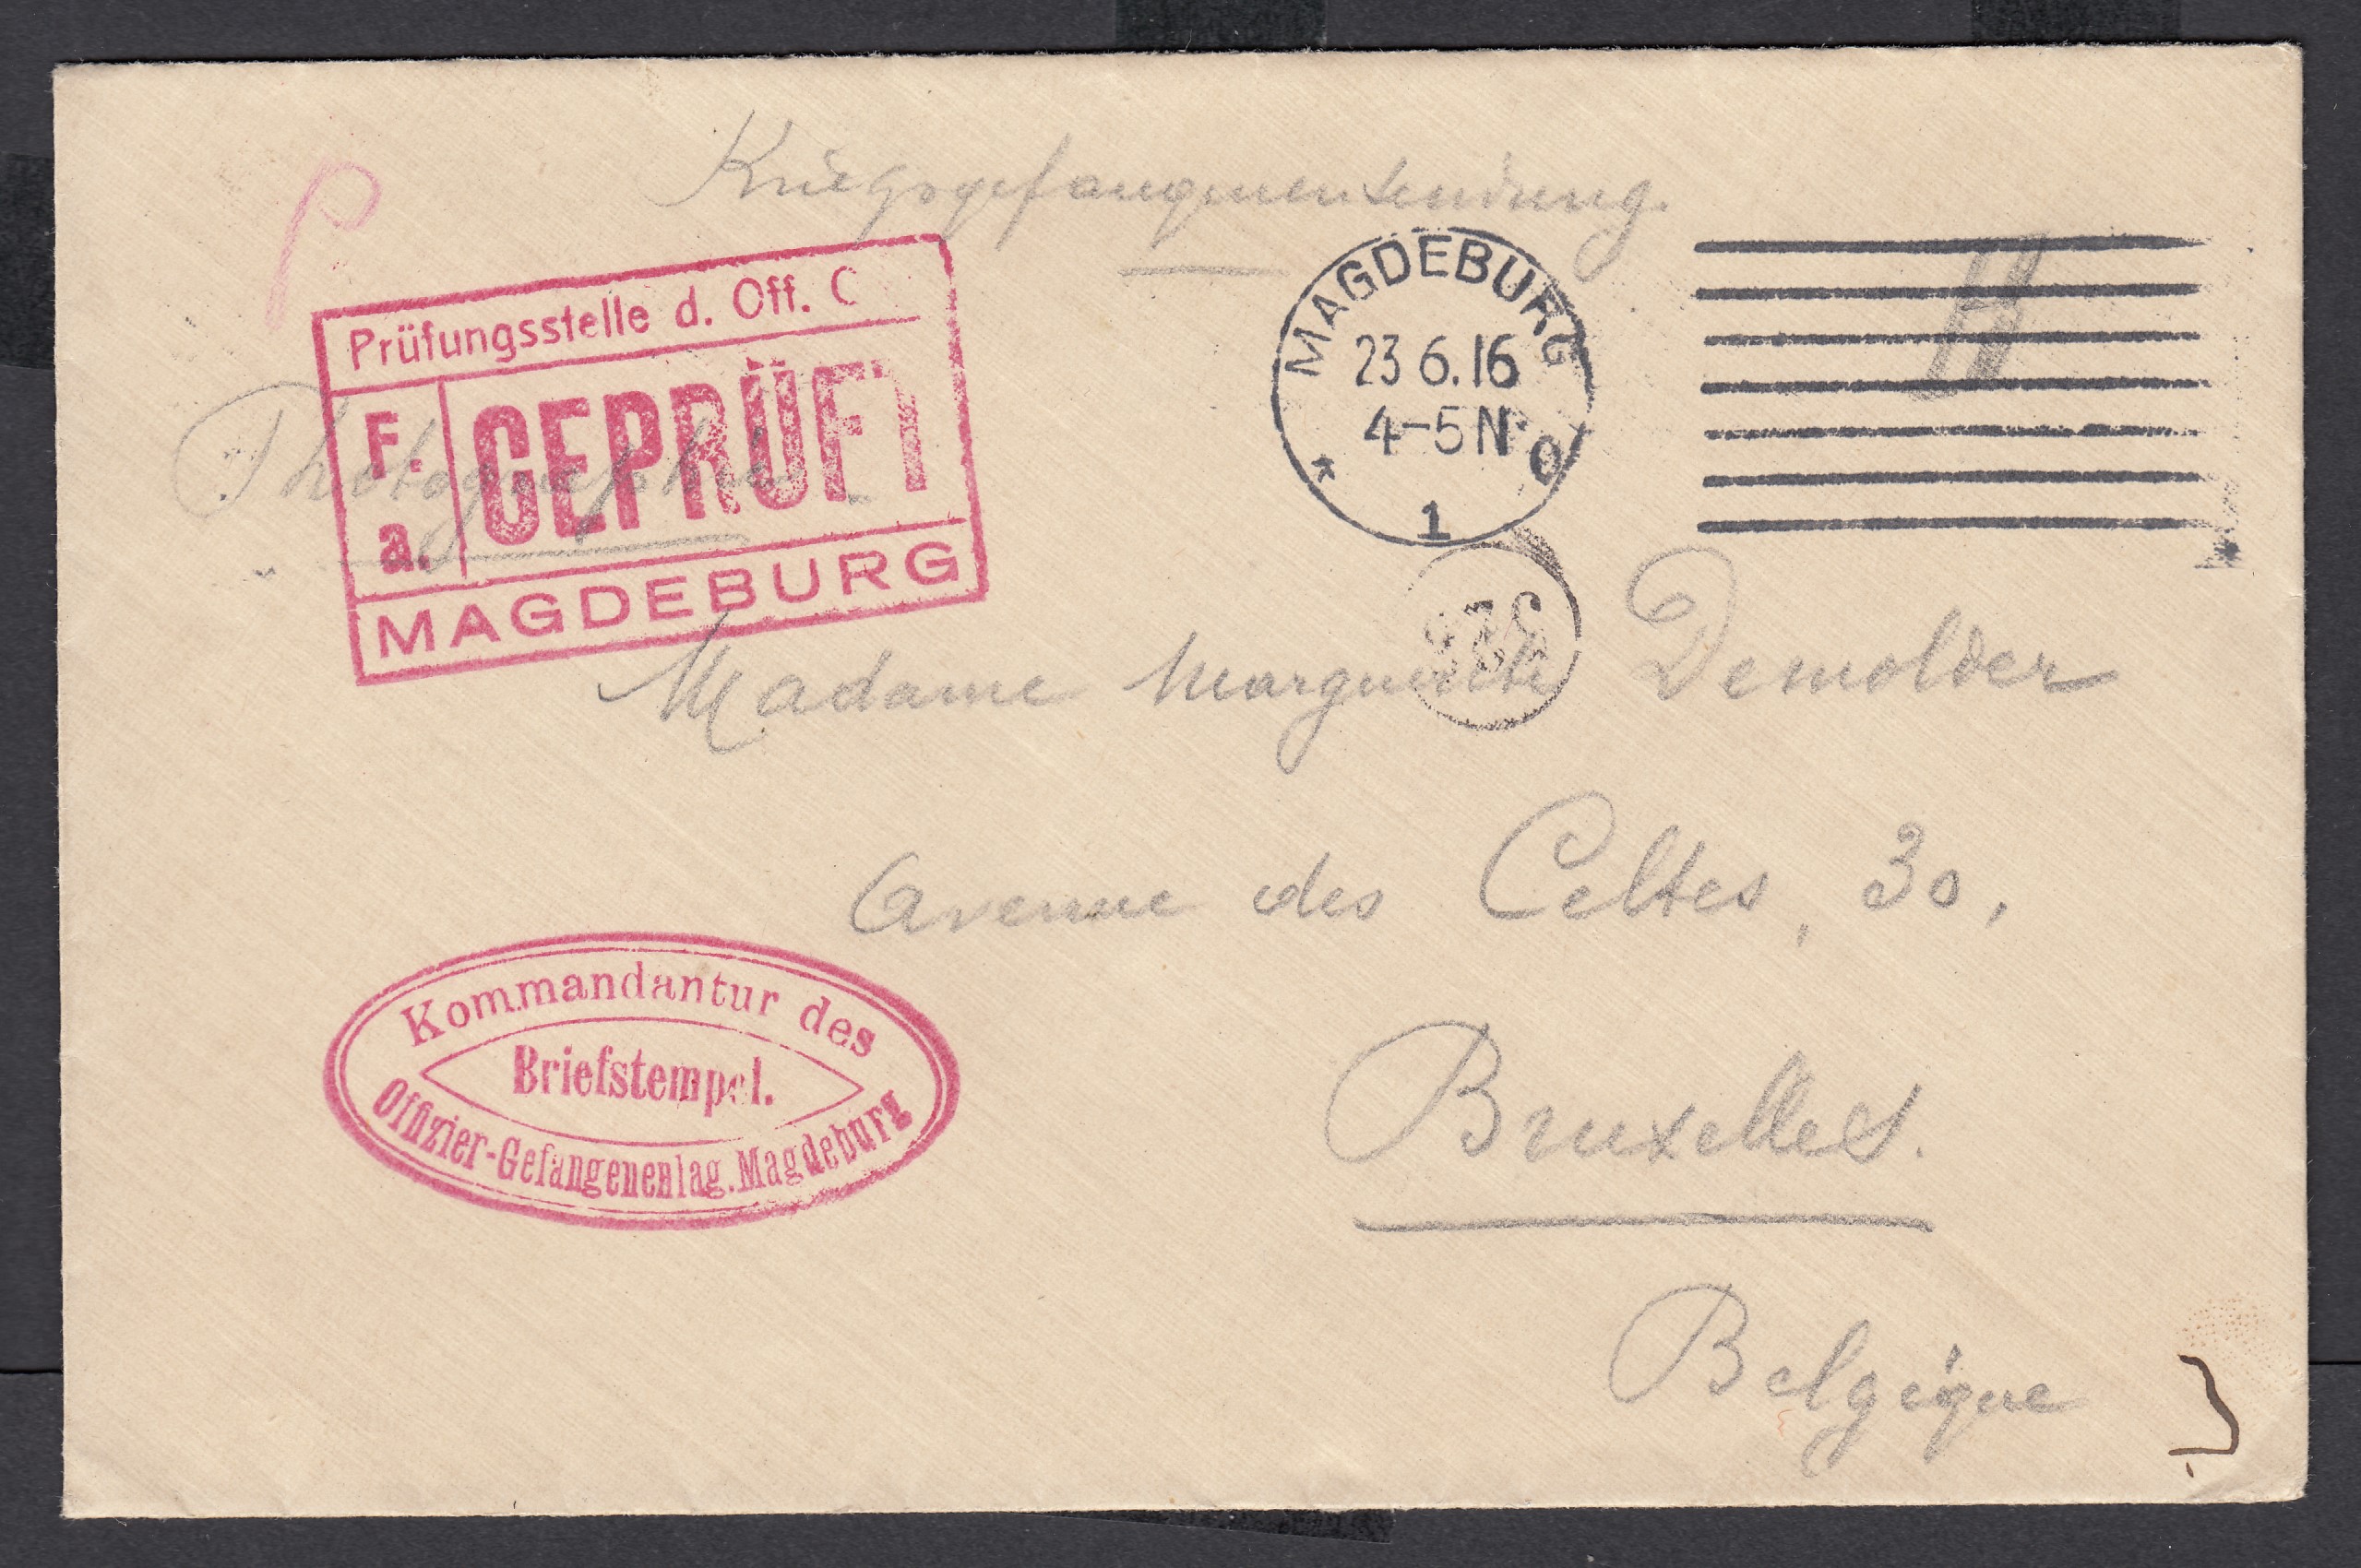 P
Kriegsgefangenensendung.
Prüfungsstelle d. Off. G
F. a.
GEPRÜFT
MAGDEBURG
Photographie
MAGDEBURG
23 6.16
4-5 N
* 1 O
H
Madame Marguerite Demolder
Avenue des Celtes, 30,
Bruxelles.
Belgique
Kommandantur des
Briefstempel.
Offizier-Gefangenenlag. Magdeburg